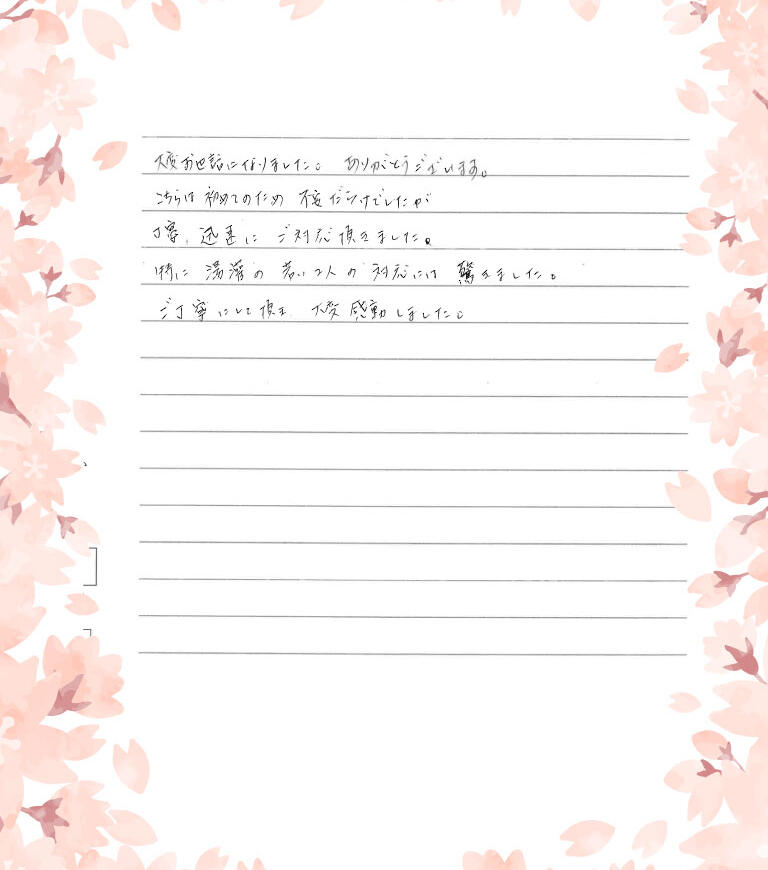 大変お世話になりました。 ありがとうございます。
こちらは初めてのため 不安だらけでしたが
丁寧、迅速に ご対応頂きました。
特に 湯灌の 若い2人の 対応には 驚きました。
ご丁寧にして頂き 大変 感動しました。